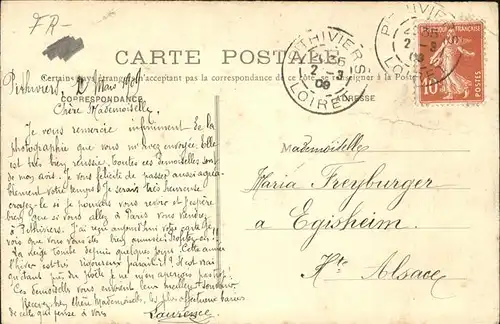 FR-
CARTE POSTALE
Certains pays étrangers n'acceptant pas la correspondance de ce côté, se renseigner à la Poste
PITHIVIERS
2-3
09
LOIRET
PITHIVIERS
2-3
09
LOIRET
10
Pithiviers, 2 Mars 1909
CORRESPONDANCE
ADRESSE
Chère Mademoiselle,
Je vous remercie infiniment de la
photographie que vous m'avez envoyée. Elle
est très bien réussie, toutes ces Demoiselles sont
de mon avis. Je vous félicite de passer aussi agréa-
blement votre temps! Je serais très heureuse
croyez-le si je pouvais vous revoir et j'espère
bien que si vous allez à Paris vous viendrez
à Pithiviers. J'ai reçu aujourd'hui votre carte je
vois que vous vous êtes bien amusée
La neige tombe depuis quelques jours. Cette année
l'hiver est rigoureux
Ces Demoiselles vous envoient leur meilleur souvenir
Recevez, chère Mademoiselle, les plus affectueux baisers
de celle qui pense à vous
Laurence
Mademoiselle
Maria Freyburger
a Egisheim
Hte Alsace